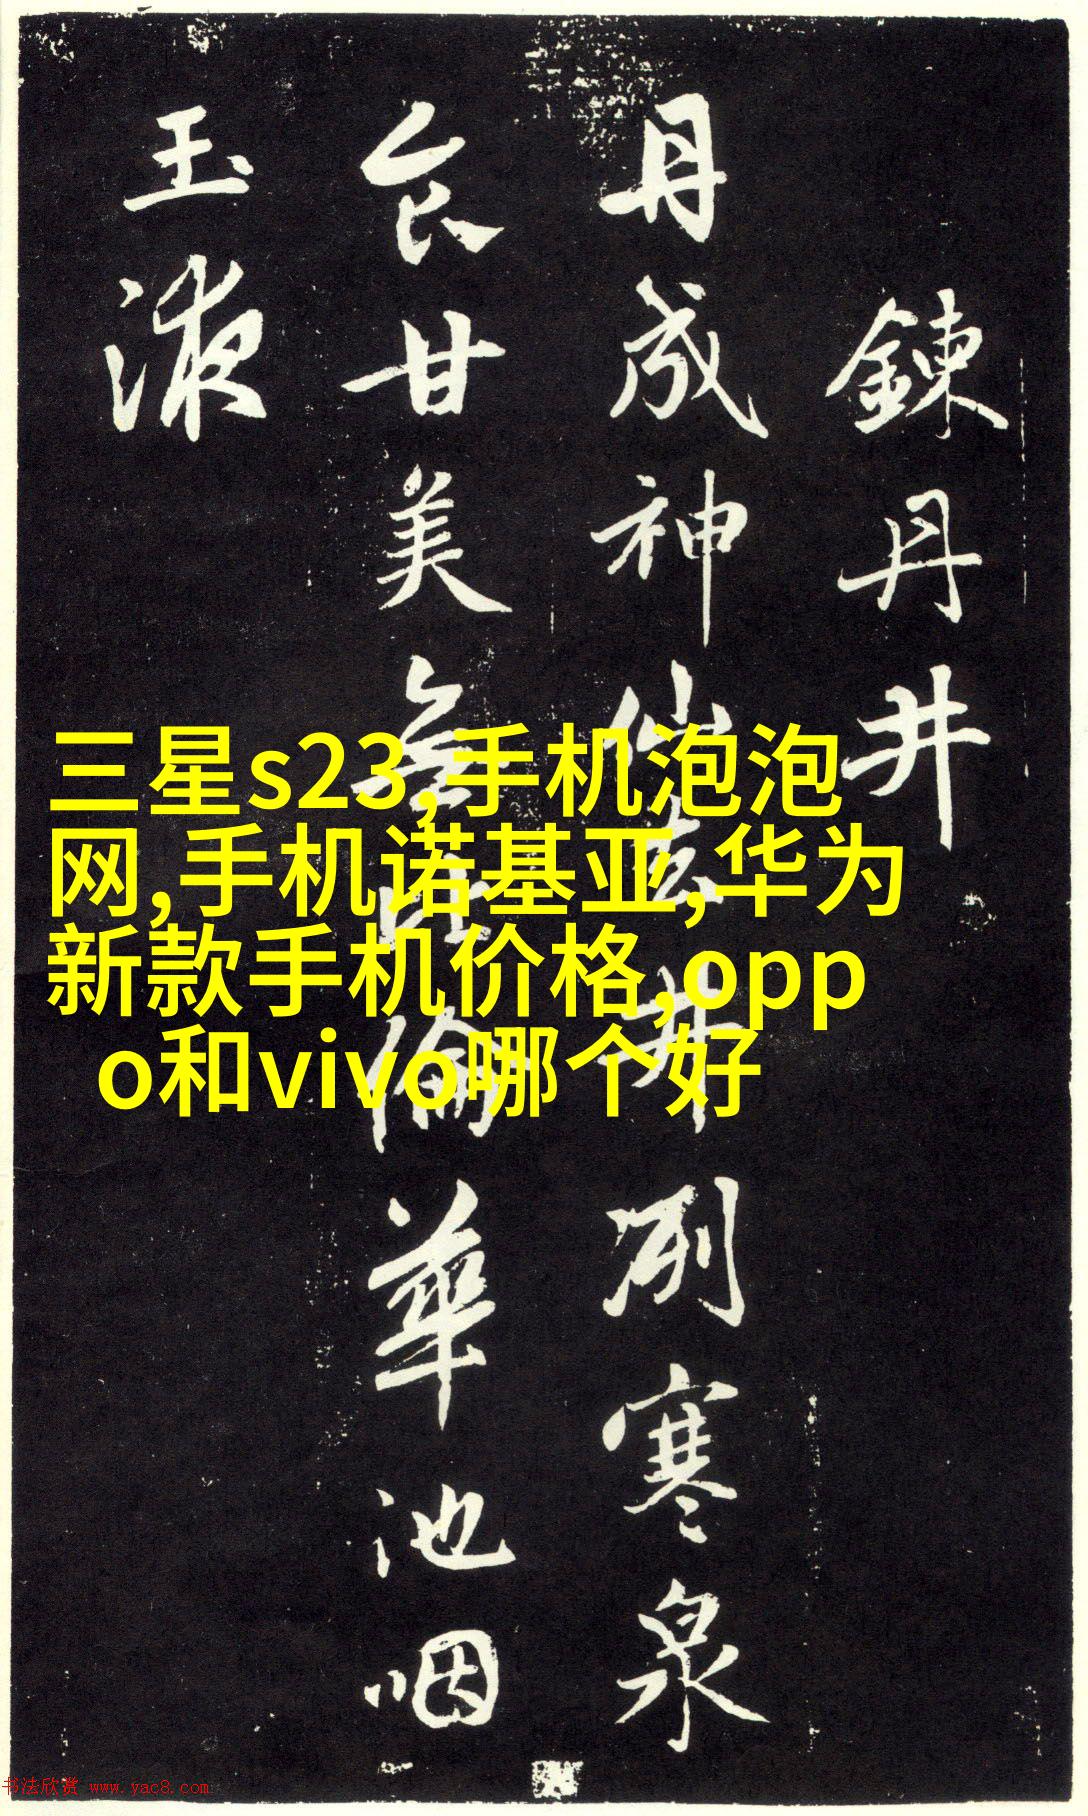 鍊丹井
丹成神仙去井冽寒泉
食甘美無比倫華池咽
玉液
三星s23,手机泡泡
网,手机诺基亚,华为
新款手机价格,opp
o和vivo哪个好
书法欣赏 www.yac8.com